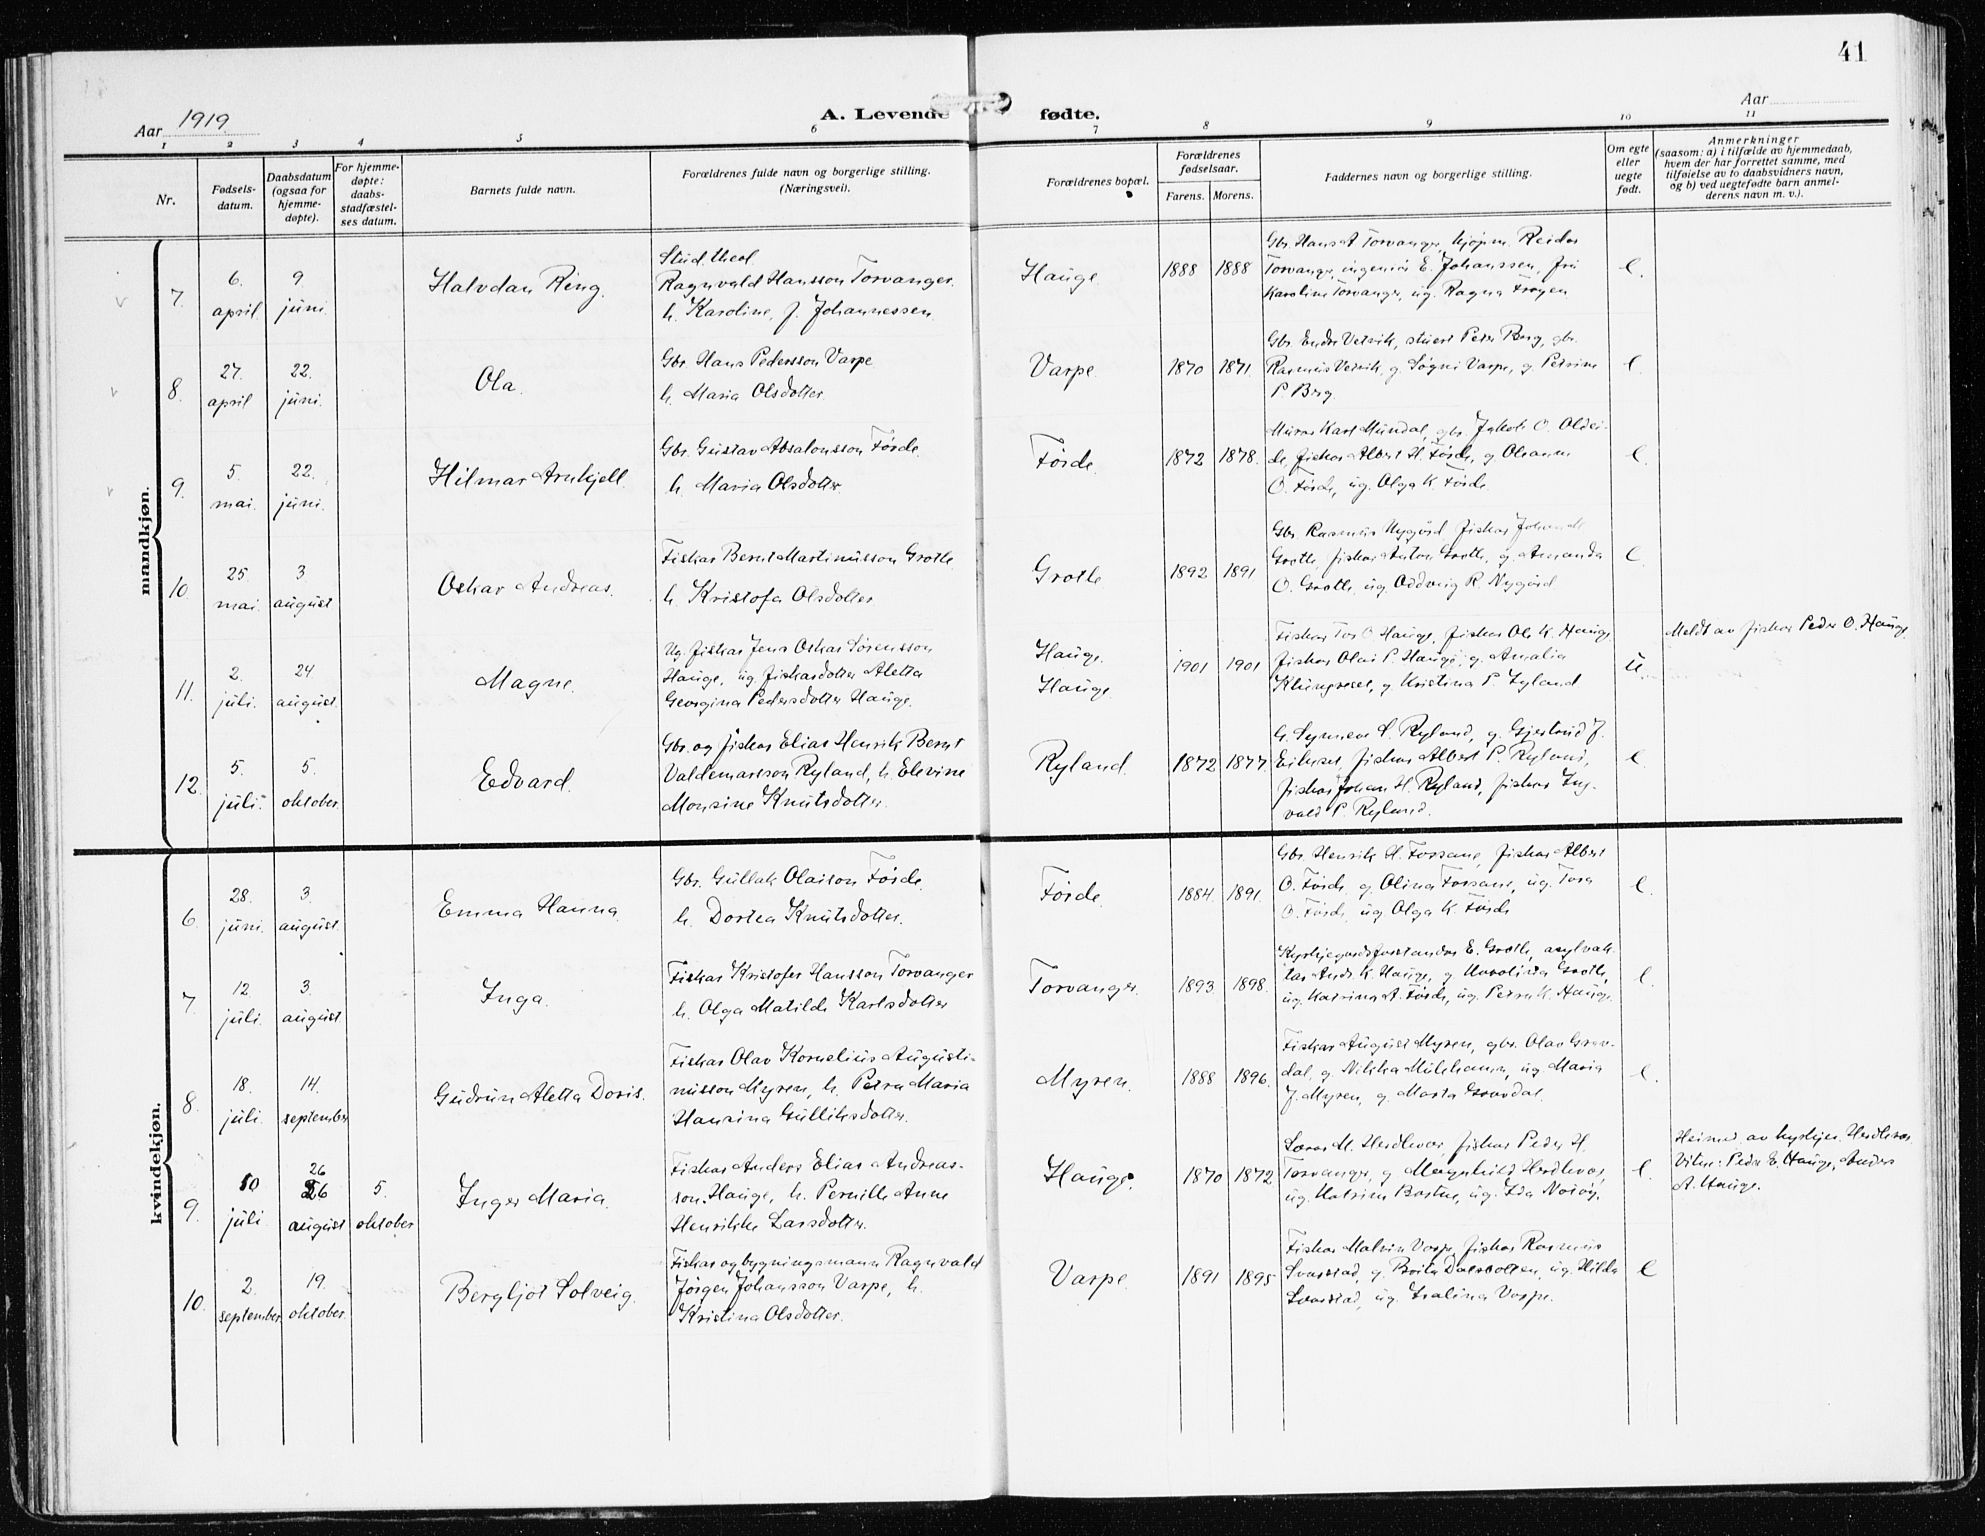 41
Aar 1919.
A. Levende fødte.
Aar
1 2 3 4 5 6 7 8 9 10 11
Nr.
Fødsels-
datum.
Daabsdatum
(ogsaa for
hjemme-
døpte).
For hjemme-
døpte:
daabs-
stadfæstel-
ses datum.
Barnets fulde navn.
Forældrenes fulde navn og borgerlige stilling.
(Næringsvei).
Forældrenes bopæl.
Forældrenes
fødselsaar.
Farens. Morens.
Faddernes navn og borgerlige stilling.
Om egte
eller
uegte
født.
Anmerkninger
(saasom: a) i tilfælde av hjemmedaab,
hvem der har forrettet samme, med
tilføielse av to daabsvidners navn,
og b) ved uegtefødte barn anmel-
derens navn m. v.).
mandkjøn.
7. 6. april 9 juni. Halvdan Ring.
Stud. theol.
Ragnvald Hansson Torvanger.
h. Karoline, f. Johannessen.
Hauge. 1888 1888
Gbr. Hans A Torvanger, kjøpm. Reidar
Torvanger, ingeniør E. Johanssen, fru
Karoline Torvanger, ug. Ragna Frøyen
e.
8. 27. april 22. juni. Ola.
Gbr. Hans Pedersson Varpe
h. Maria Olsdotter.
Varpe. 1870 1871.
Gbr. Endre Vetvik, stuert Peder Berg, gbr.
Rasmus Vetvik, g. Søgni Varpe, g. Petrine
P. Berg.
e.
9. 5. mai. 22. juni. Hilmar Arnkjell.
Gbr. Gustav Absalonsson Førde.
h. Maria Olsdotter
Førde. 1872 1878.
Murar Karl Mundal, gbr. Jakob O. Oldei-
de, fiskar Albert H. Førde, g Oleanna
O. Førde, ug. Olga K. Førde.
e.
10. 25. mai. 3. august Oskar Andreas.
Fiskar Bernt Martinusson Grotle.
h. Kristofa Olsdotter.
Grotle 1892 1891
Gbr. Rasmus Nygård, fiskar Johannes
Grotle, fiskar Anton Grotle, g. Amanda
O. Grotle, ug. Oddveig R. Nygård
e.
11. 2. juli. 24 august. Magne.
Ug. fiskar Jens Oskar Sørensson
Hauge, ug. fiskardotter Aletta
Georgina Pedersdotter Hauge.
Hauge.
Hauge
1901 1901
Fiskar Tor O Hauge, fiskar Ole K. Hauge
fiskar Olai P. Hauge, g. Amalia
Klungreset, g Kristina P. Ryland
u.
Meldt av fiskar Peder O. Hauge.
12. 5. juli. 5. oktober. Edvard.
Gbr. og fiskar Elias Henrik Bernt
Valdemarsson Ryland, h. Elevine
Monsine Knutsdotter.
Ryland. 1872 1877
h. Synneve S. Ryland, g. Gjertrud J.
Eikeset, fiskar Albert P. Ryland,
fiskar Johan H. Ryland, fiskar Ing-
vald P. Ryland.
e.
kvindekjøn.
6. 28. juni. 3. august. Emma Hanna.
Gbr. Gullak Olaison Førde.
h. Dortea Knutsdotter.
Førde. 1884. 1891.
Gbr. Henrik H. Fossane, fiskar Albert
O. Førde, g Olina Fossane, ug. Tora
O. Førde, ug Olga K. Førde
e.
7. 12 juli. 3. august Inga.
Fiskar Kristofer Hansson Torvanger
h. Olga Matilde Karlsdotter
Torvanger. 1893. 1898.
Kyrkjegardsforstandar E. Grotle, asylvak-
tar Andr. K. Hauge, g Karolina Grotle,
ug. Katrine A. Førde, ug. Petra K. Hauge.
e.
8. 18. juli. 14. september Gudrun Aletta Doris.
Fiskar Olav Kornelius Augusti-
nusson Myren, h. Petra Maria
Hansina Gulliksdotter.
Myren. 1888 1896.
Fiskar August Myren, gbr. Olav Grov-
dal, g. Nikka Mikkhamn, ug Maria
J. Myren, g. Marta Grovdal.
e.
9. 10 juli. 26 26 august 5. oktober. Inger Maria.
Fiskar Anders Elias Andreas-
son Hauge, h. Pernille Anne
Henrikke Larsdotter.
Hauge. 1870 1872
Lærar M. Herdlevær, fiskar Peder H.
Torvanger, g Magnhild Herdlevær,
ug. Katrine, ug. Ida
e.
Heimed. av kyrkjes. Herdlevær
Vitne: Peder E. Hauge, Anders
A. Hauge.
10. 2. september. 19. oktober. Bergljot Solveig.
Fiskar og bygningsmann Ragnvald
Jørgen Johansson Varpe, h.
Kristina Olsdotter.
Varpe 1891 1895
Fiskar Malvin Varpe, fiskar Rasmus
Svarstad, g. Berta, ug. Hilda
Svarstad, ug. Isalina Varpe.
e